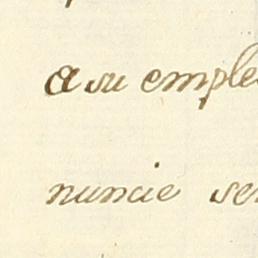 a su emple
nuncie se